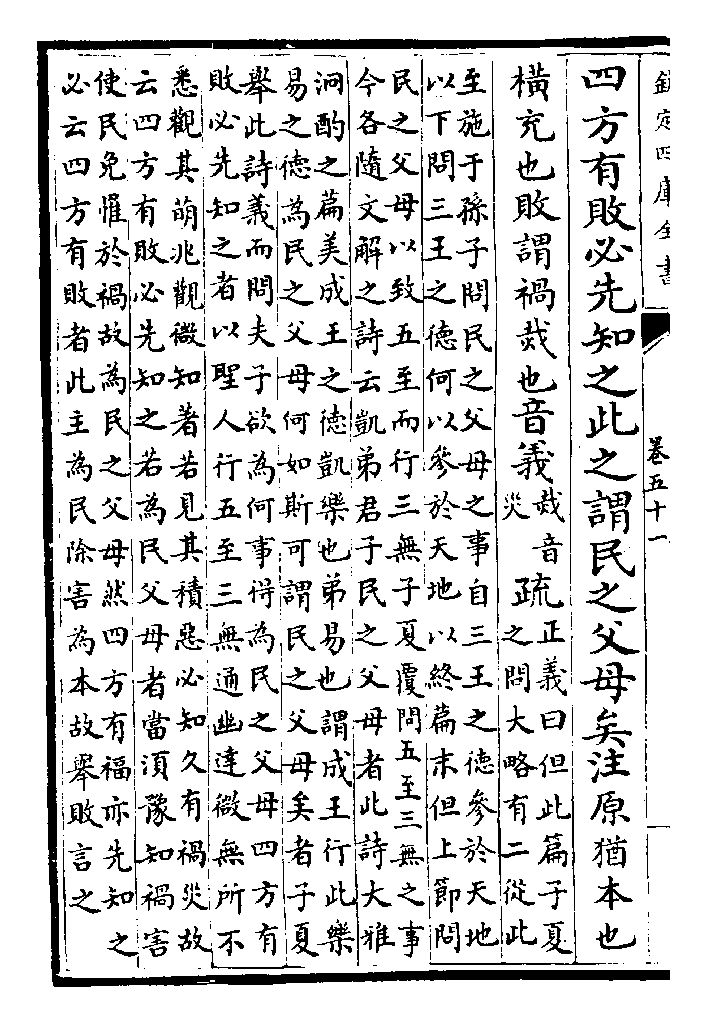 欽定四庫全書
卷五十一
四方有敗必先知之此之謂民之父母矣注原猶本也
橫充也敗謂禍烖也音義烖音災疏正義曰但此篇子夏之問大略有二從此
至施于孫子問民之父母之事自三王之德參於天地
以下問三王之德何以參於天地以終篇末但上節問
民之父母以致五至而行三無子夏覆問五至三無之事
今各隨文解之詩云凱弟君子民之父母者此詩大雅
泂酌之篇美成王之德凱樂也弟易也謂成王行此樂
易之德為民之父母何如斯可謂民之父母矣者子夏
舉此詩義而問夫子欲為何事得為民之父母四方有
敗必先知之者以聖人行五至三無通幽達微無所不
悉觀其萌兆觀微知著若見其積惡必知久有禍災故
云四方有敗必先知之若為民父母者當須豫知禍害
使民免罹於禍故為民之父母然四方有福亦先知之
必云四方有敗者此主為民除害為本故舉敗言之